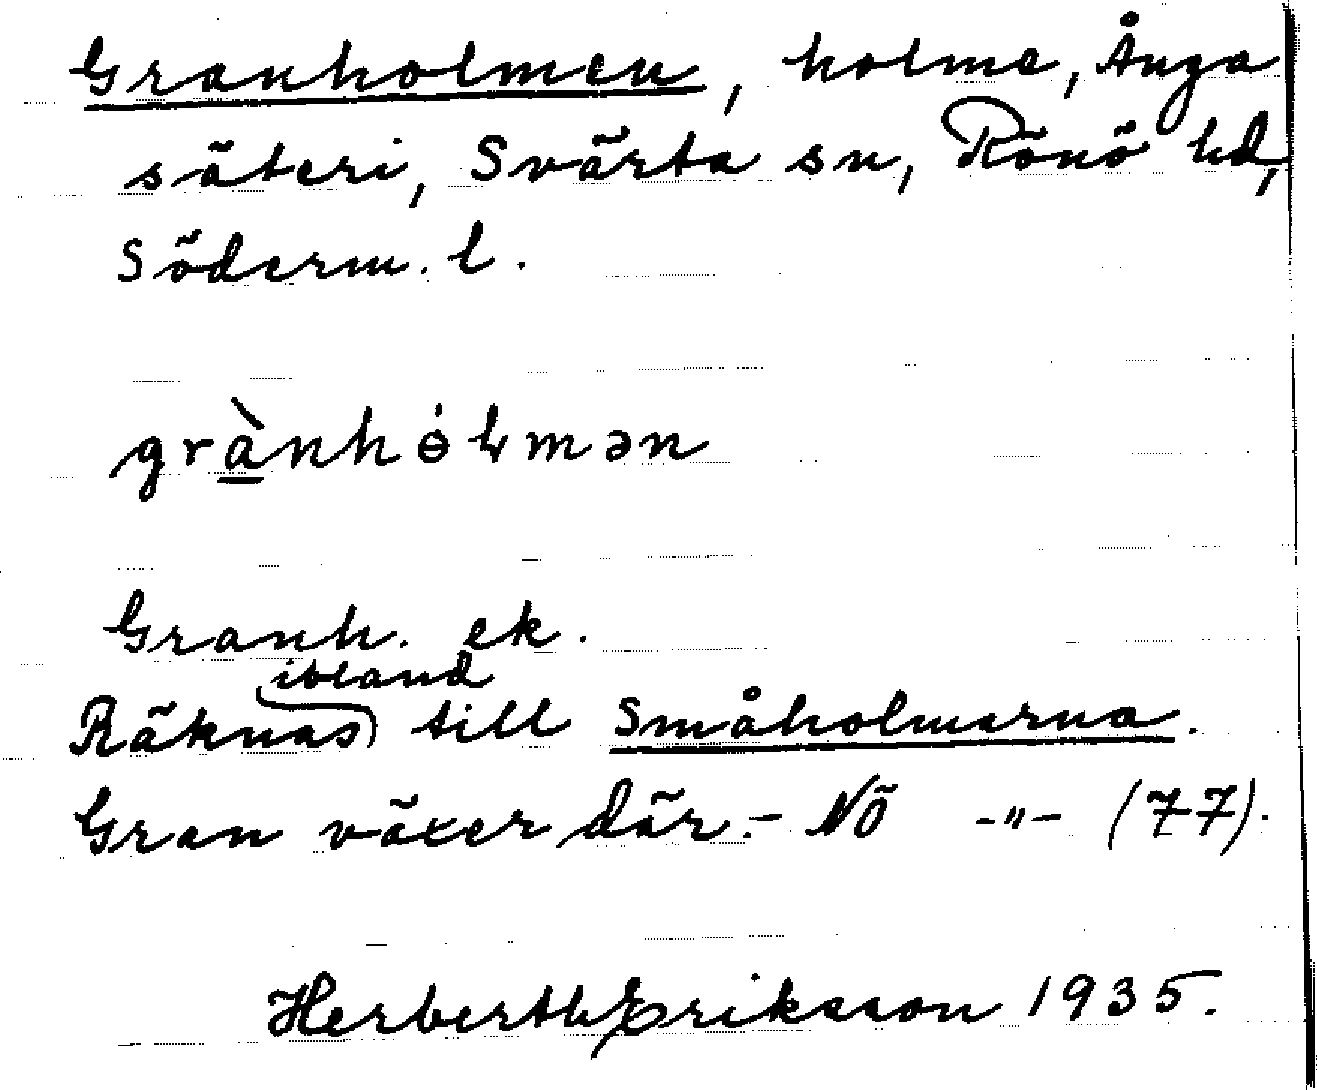 Granholmen, holme, Ånga
säteri, Svärta sn, Rönö hd,
Söderm. l.
grànhɵ́ɫmən
Granh. ek.
ibland
Räknas till Småholmarna.
Gran växer där.- NÖ -"- (77).
Herberth Eriksson 1935.